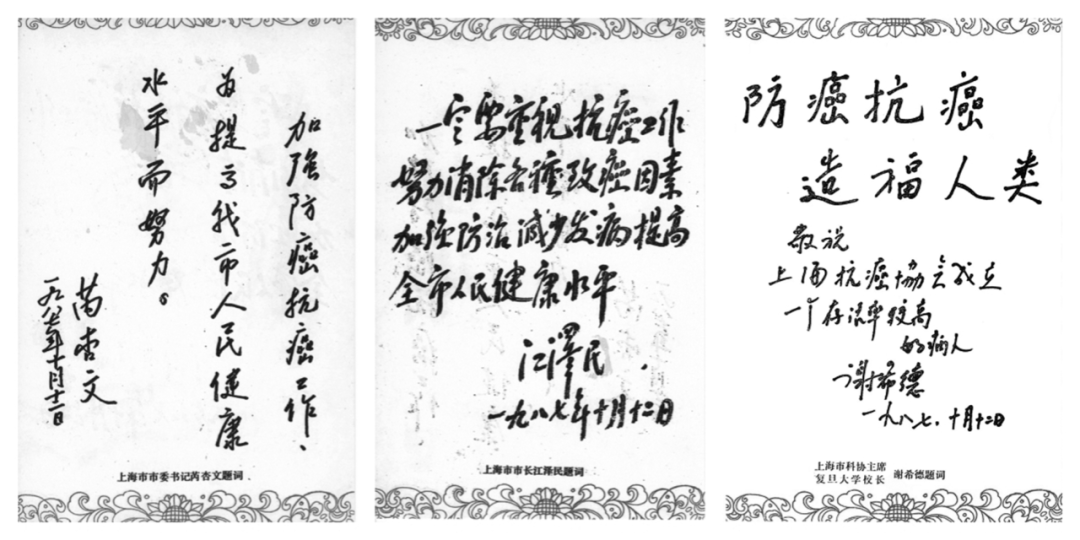 加強防癌抗癌工作、
为提高我市人民健康
水平而努力。
芮杏文
一九八七年十月十二日
上海市市委书记芮杏文题词
一定要重视抗癌工作
努力消除各種致癌因素
加強防治减少发病提高
全市人民健康水平
江澤民
一九八七年十月十二日
上海市市长江泽民题词
防癌抗癌
造福人类
敬祝
上海抗癌協会成立
一个存活率较高
的病人
谢希德
一九八七.十月十二日
上海市科协主席
复旦大学校长 谢希德题词